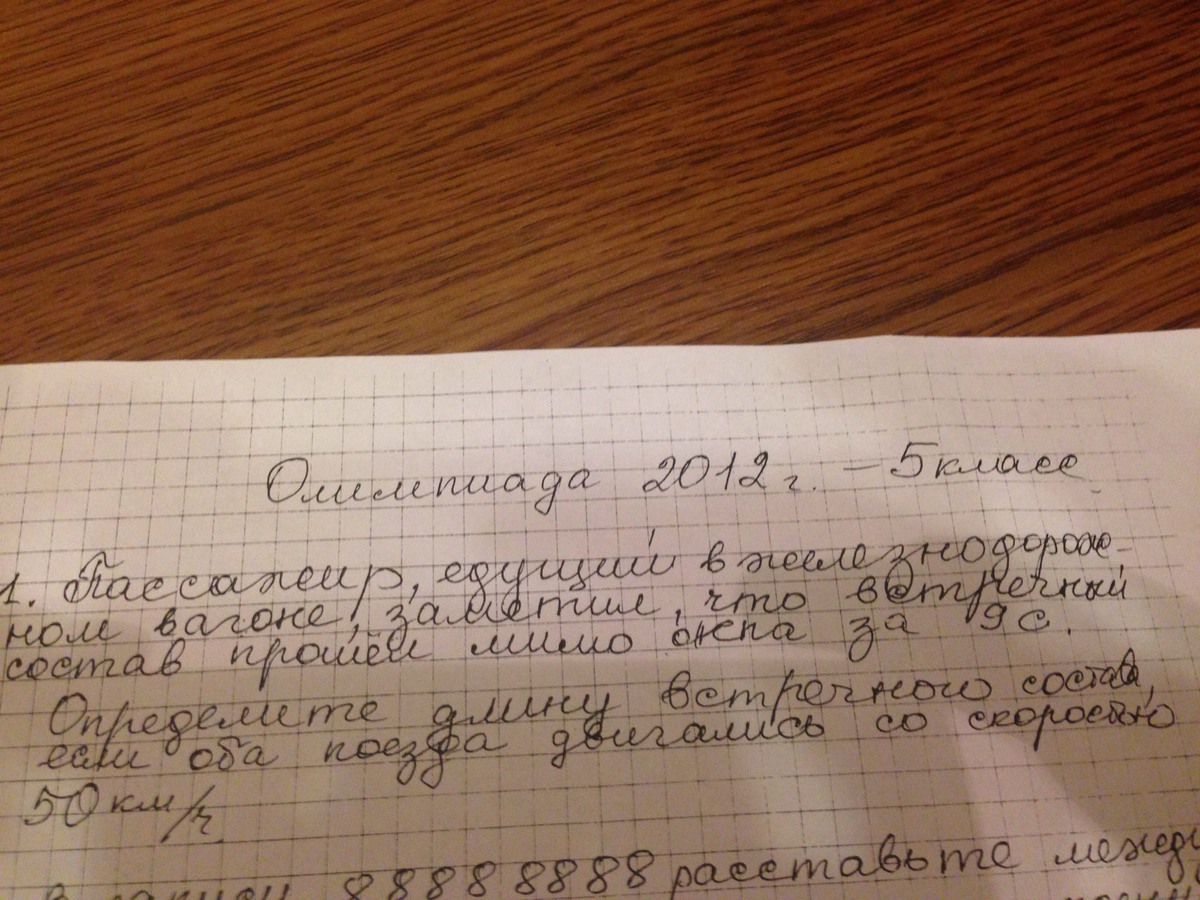 Олимпиада 2012 г. – 5 класс
1. Пассажир, едущий в железнодорож-
ном вагоне, заметил, что встречный
состав прошёл мимо окна за 9 с.
Определите длину встречного состава,
если оба поезда двигались со скоростью
50 км/ч
В записи 8888 8888 расставьте между